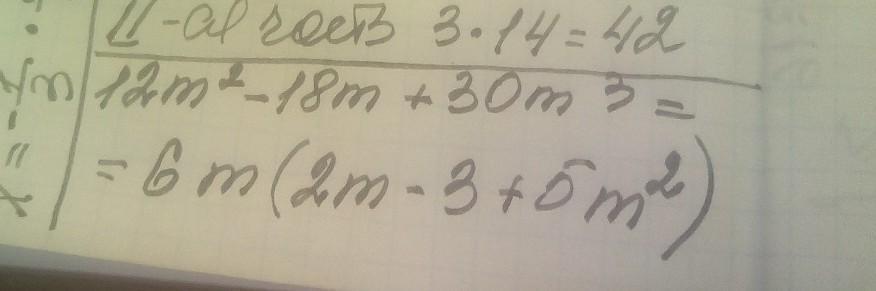 II-ая часть 3·14=42
12m²-18m+30m³=
=6m(2m-3+5m²)